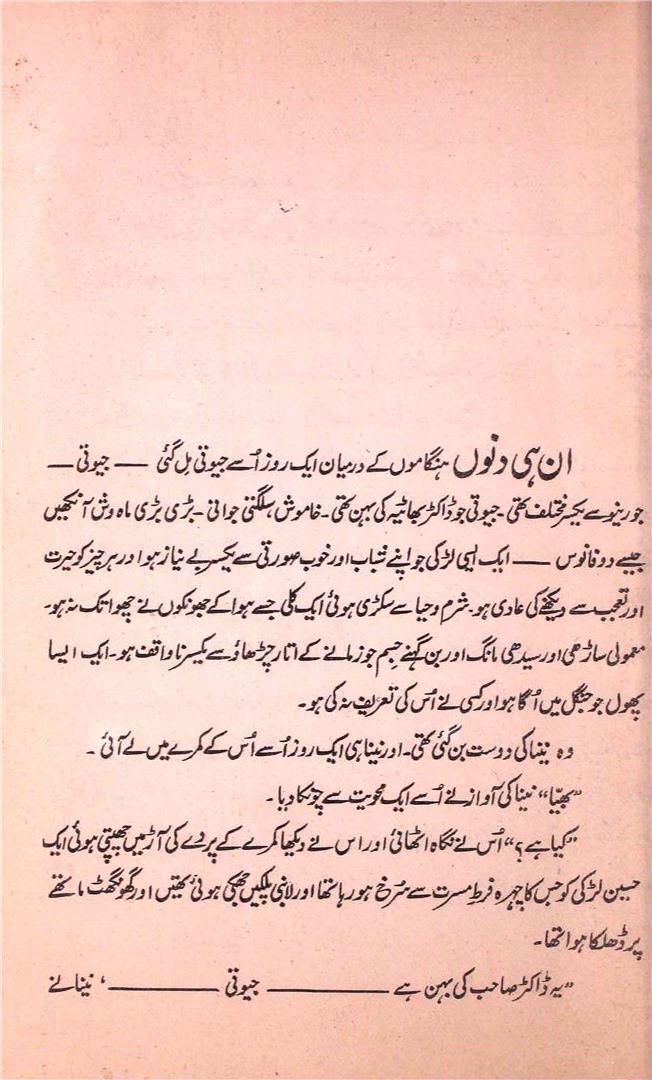 ان ہی دنوں ہنگاموں کے درمیان ایک روز اُسے جیوتی مل گئی — جیوتی —
جو رینو سے یکسر مختلف تھی۔ جیوتی جو ڈاکٹر بھاٹیہ کی بہن تھی۔ خاموش سلگتی جوانی۔ بڑی بڑی ماہ وش آنکھیں
جیسے دو فانوس — ایک ایسی لڑکی جو اپنے شباب اور خوب صورتی سے یکسر بے نیاز ہو اور ہر چیز کو حیرت
اور تعجب سے دیکھنے کی عادی ہو۔ شرم و حیا سے سکڑی ہوئی ایک کلی جسے ہوا کے جھونکوں نے چھوا تک نہ ہو۔
معمولی ساڑھی اور سیدھی مانگ اور بن گہنے جسم جو زمانے کے اتار چڑھاؤ سے یکسر ناواقف ہو۔ ایک ایسا
پھول جو جنگل میں اُگا ہو اور کسی نے اُس کی تعریف نہ کی ہو۔
وہ نینا کی دوست بن گئی تھی۔ اور نینا ہی ایک روز اُسے اُس کے کمرے میں لے آئی۔
”بھیّا“ نینا کی آواز نے اُسے ایک محویت سے چونکا دیا۔
”کیا ہے؟“ اُس نے نگاہ اٹھائی اور اس نے دیکھا کمرے کے پردے کی آڑ میں چھپتی ہوئی ایک
حسین لڑکی کو جس کا چہرہ فرطِ مسرت سے سُرخ ہو رہا تھا اور لانبی پلکیں جھکی ہوئی تھیں اور گھونگھٹ ماتھے
پر ڈھلکا ہوا تھا۔
”یہ ڈاکٹر صاحب کی بہن ہے ——— جیوتی ———، نینا نے